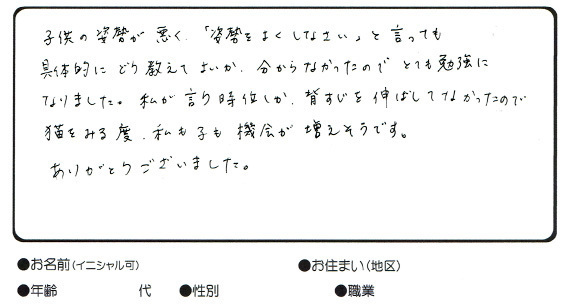 子供の姿勢が悪く、「姿勢をよくしなさい」と言っても
具体的にどう教えてよいか、分からなかったのでとても勉強に
なりました。私が言う時位しか、背すじを伸ばしてなかったので
猫をみる度、私も子も機会が増えそうです。
ありがとうございました。
●お名前(イニシャル可) ●お住まい(地区)
●年齢 代 ●性別 ●職業